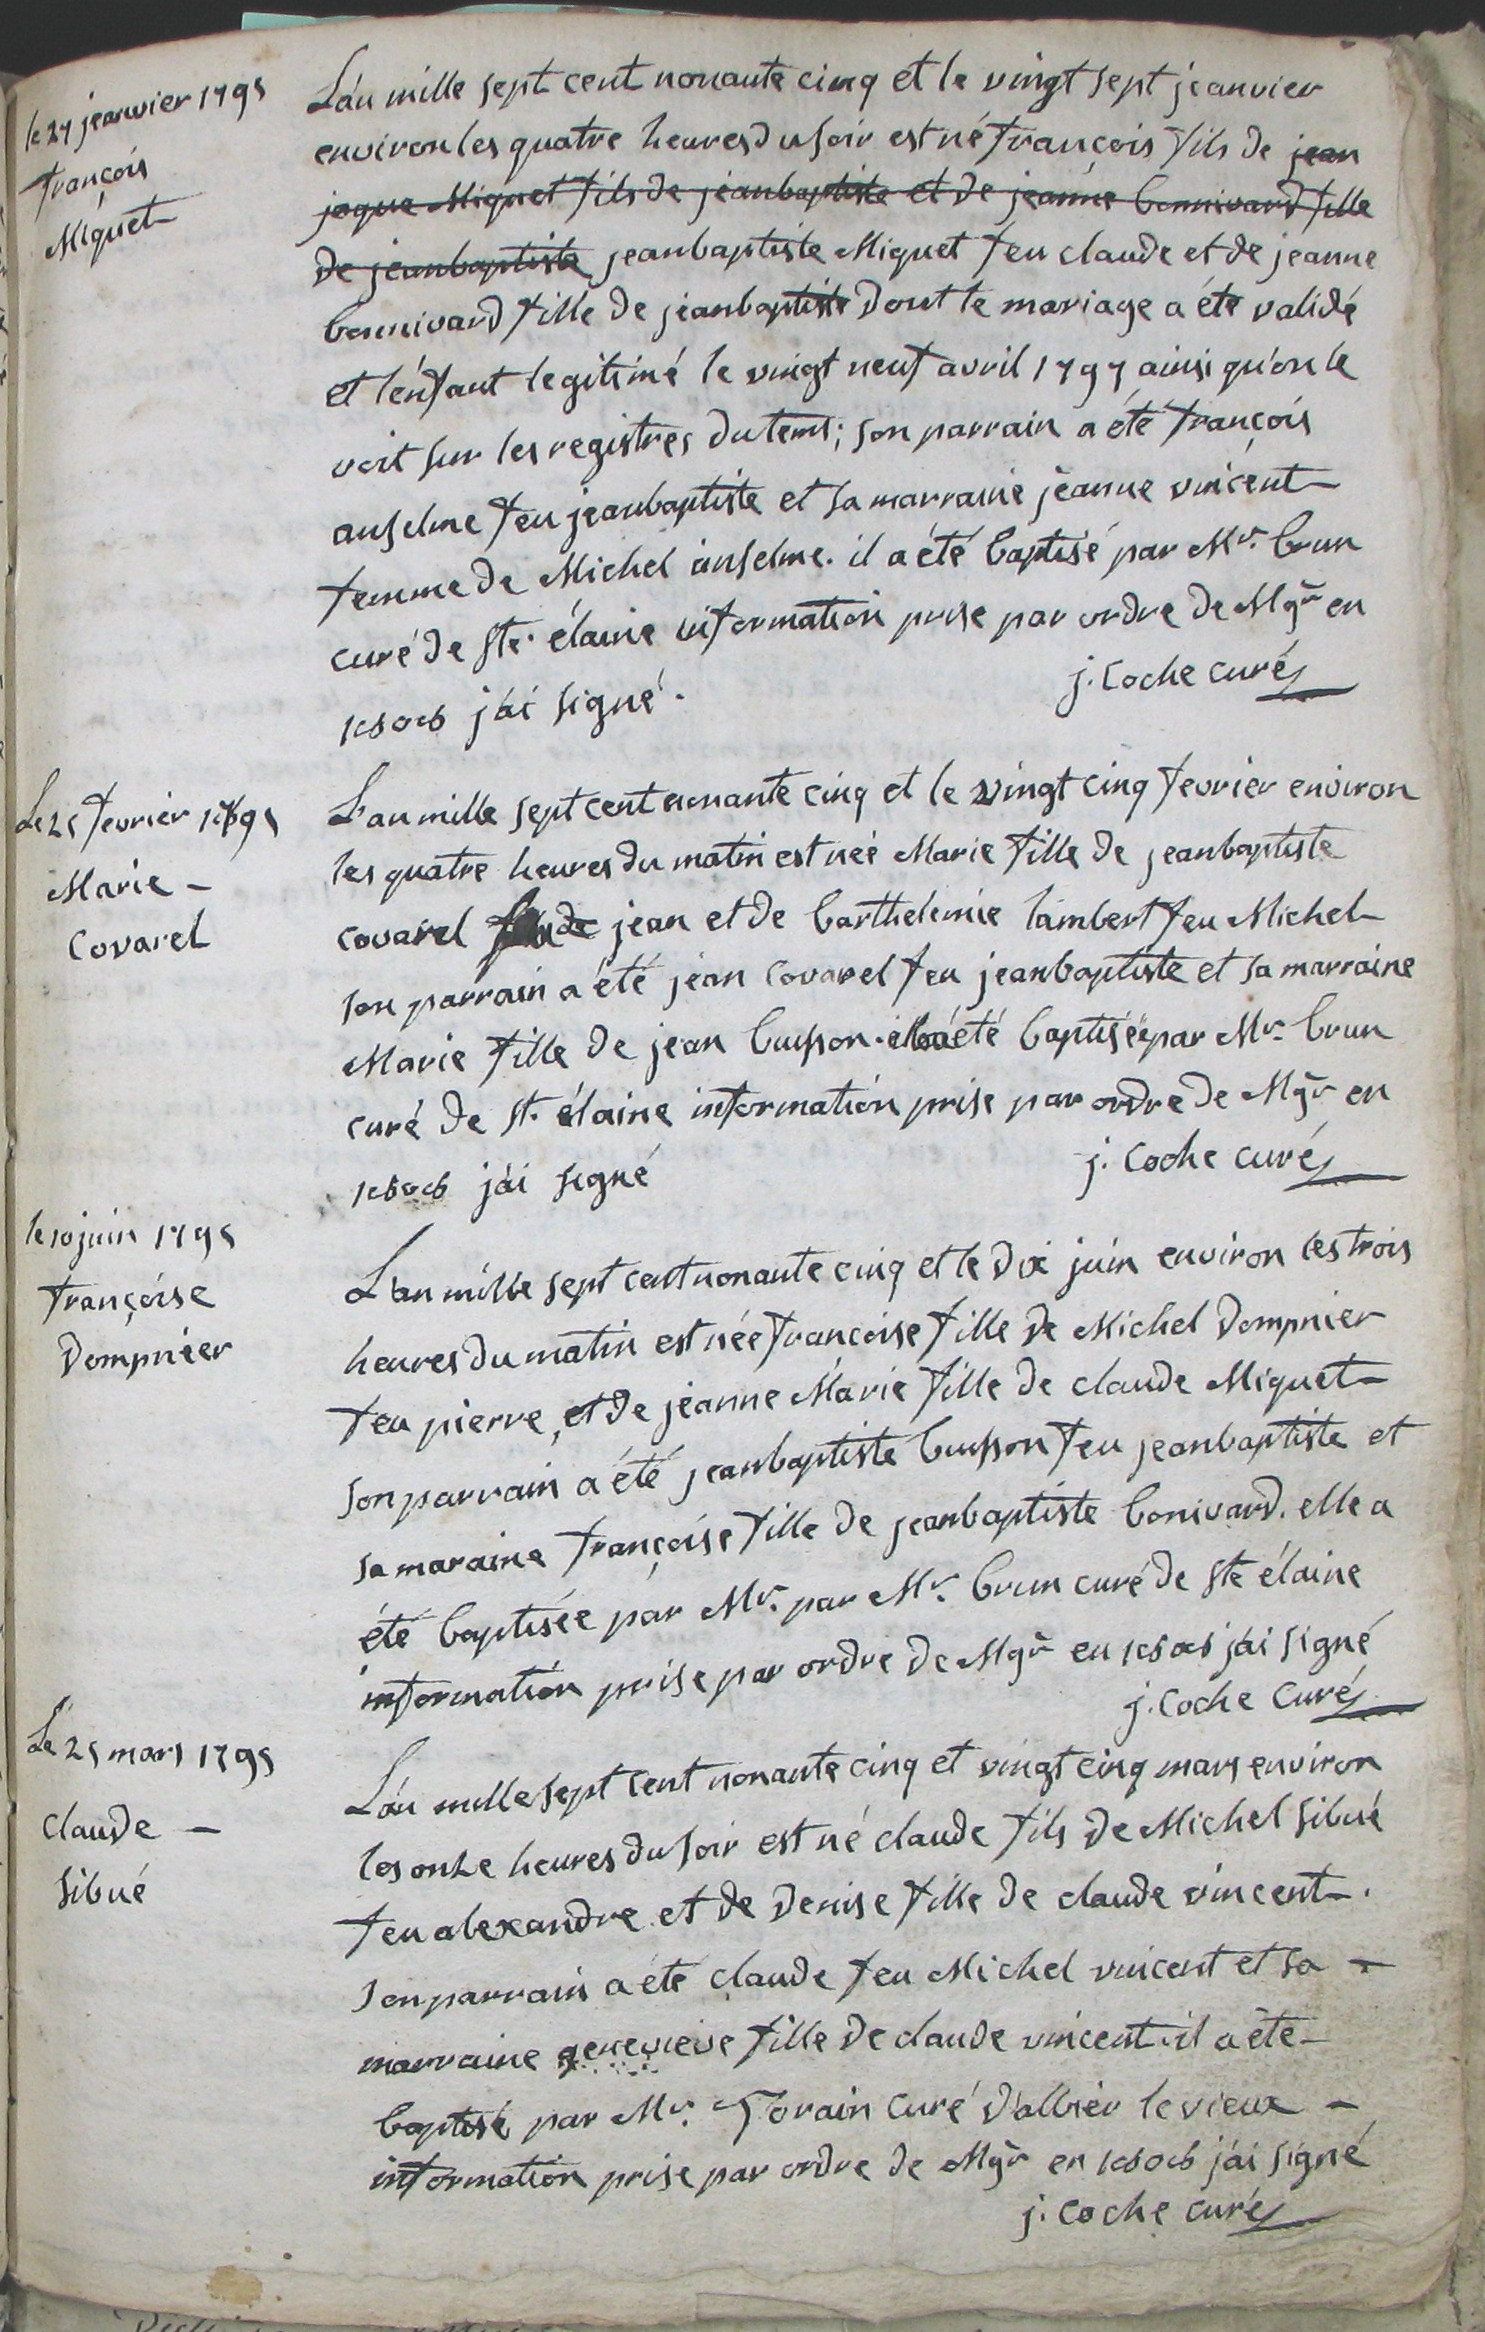 le 27 jeanvier 1795
françois
Miquet
L'an mille sept cent nonante cinq et le vingt sept jeanvier
environ les quatre heures du soir est né françois fils de jean
jaque Miquet fils de jeanbaptiste et de jeanne bonnivard fille
de jeanbaptiste jeanbaptiste Miquet feu claude et de jeanne
bonnivard fille de jeanbaptiste dont le mariage a été validé
et l'enfant legitimé le vingt neuf avril 1797 ainsi qu'on le
voit sur les registres du tems; son parrain a été françois
anselme feu jeanbaptiste et sa marraine jeanne vincent
femme de Michel anselme. il a été baptisé par Mr. brun
curé de ste. élaine information prise par ordre de Mgr en
j'ai signé.
j. Coche curé
Le 25 fevrier 1795
Marie -
Covarel
L'an mille sept cent nonante cinq et le vingt cinq fevrier environ
les quatre heures du matin est née Marie fille de jeanbaptiste
covarel de jean et de barthelemie lambert feu Michel
son parrain a été jean Covarel feu jeanbaptiste et sa marraine
Marie fille de jean buisson. ella été baptisée par Mr. brun
curé de st. élaine information prise par ordre de Mgr en
j'ai signé
j. Coche curé
le 10 juin 1795
françoise
Dompnier
L'an mille sept cent nonante cinq et le dix juin environ les trois
heures du matin est née françoise fille de Michel Dompnier
feu pierre, et de jeanne Marie fille de claude Miquet
son parrain a été jeanbaptiste buisson feu jeanbaptiste et
sa maraine françoise fille de jeanbaptiste bonivard. elle a
été baptisée par Mr. par Mr. brun curé de ste élaine
information prise par ordre de Mgr en j'ai signé
j. Coche curé
Le 25 mars 1795
Claude -
Sibué
L'an mille sept cent nonante cinq et vingt cinq mars environ
les onze heures du soir est né claude fils de Michel Sibué
feu alexandre et de Denise fille de claude vincent.
son parrain a été claude feu Michel vincent et sa -
marraine genevieve fille de claude vincent. il a été
baptisé par Mr. Torain curé d'albiér le vieux -
information prise par ordre de Mgr en j'ai signé
j. Coche curé